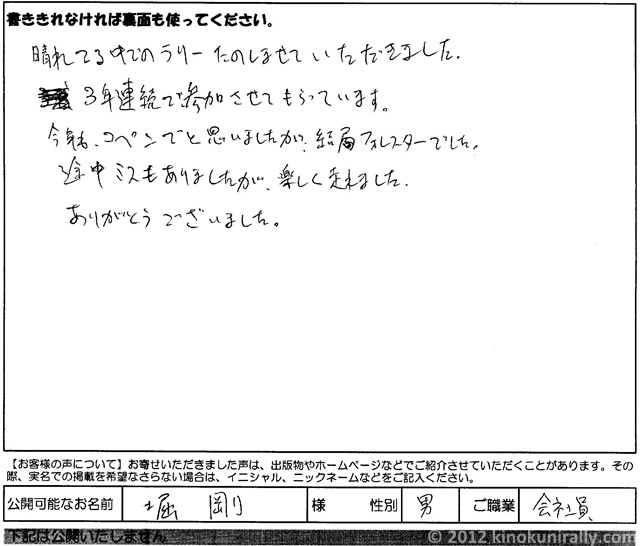 書ききれなければ裏面も使ってください。
晴れてる中でのラリーたのしませていただきました.
3年連続で参加させてもらっています。
コペンでと思いましたが、結局フォレスターでした。
途中ミスもありましたが、楽しく走れました.
ありがとうございました。
【お客様の声について】お寄せいただきました声は、出版物やホームページなどでご紹介させていただくことがあります。その
際、実名での掲載を希望なさらない場合は、イニシャル、ニックネームなどをご記入ください。
公開可能なお名前 堀 剛 様 性別 男 ご職業 会社員
下記は公開いたしません
© 2012 kinokunirally.com